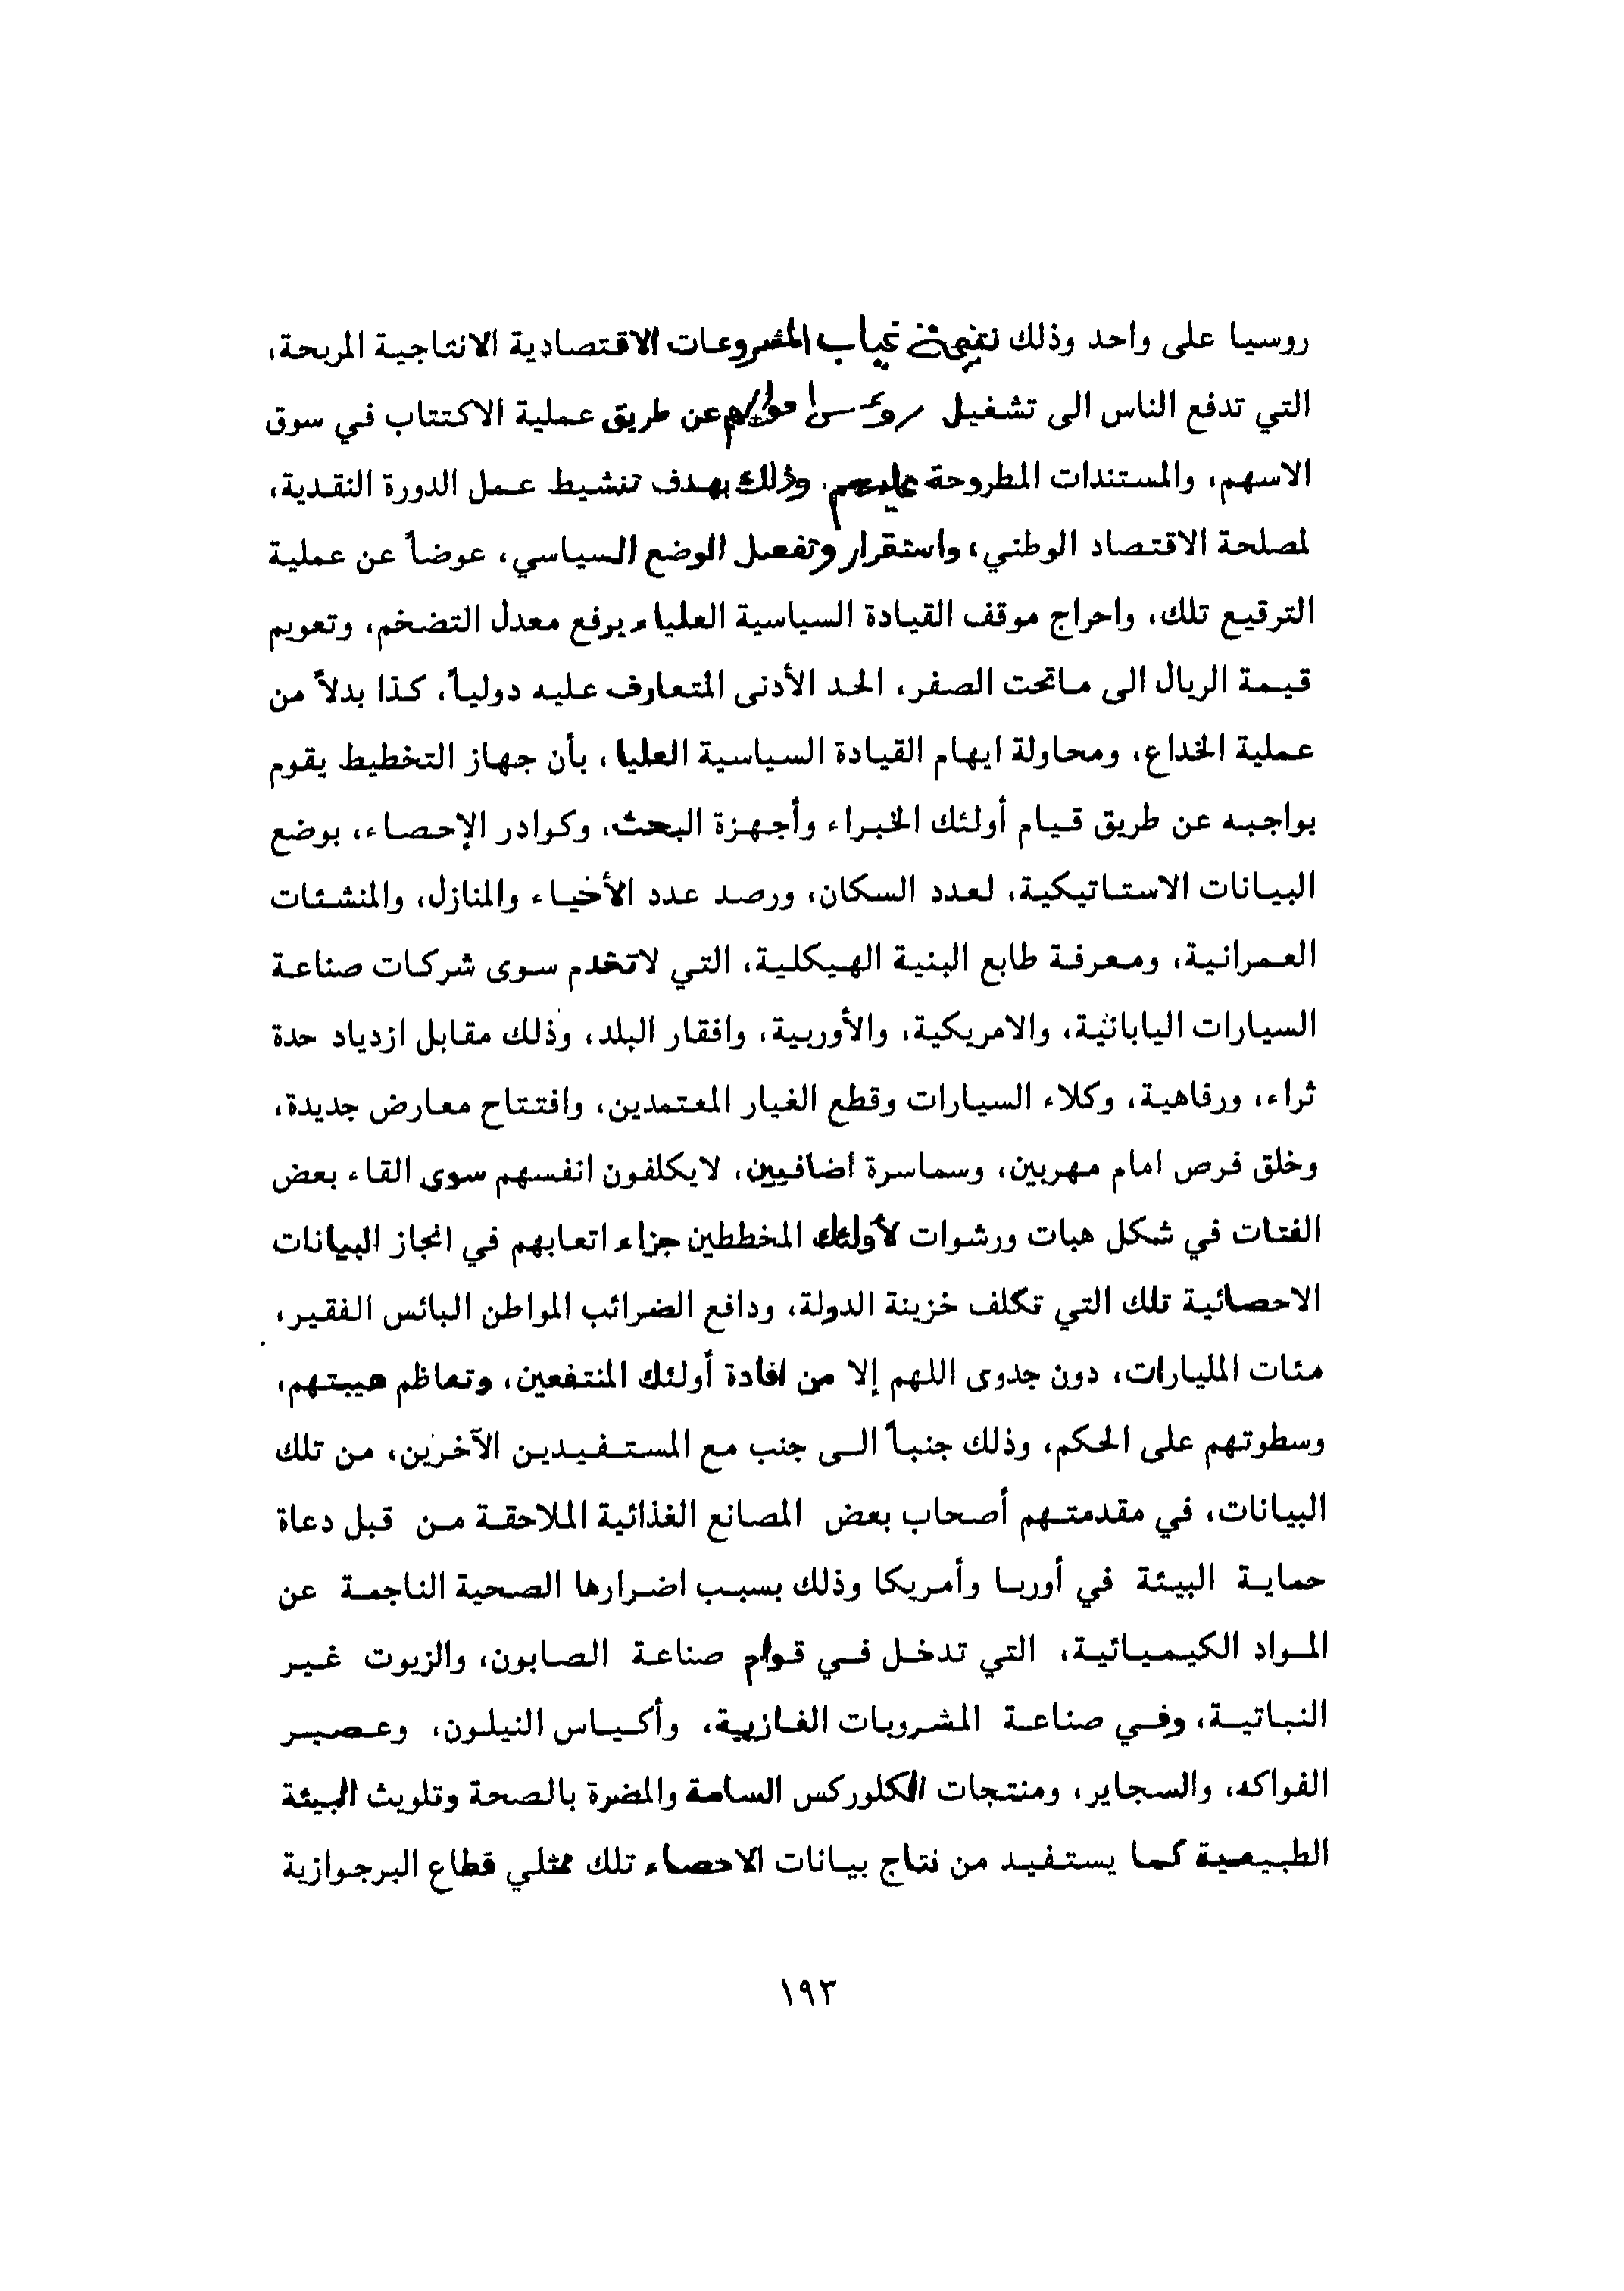 روسيا على واحد وذلك نتيجة غياب المشروعات الاقتصادية الانتاجية المربحة،
التي تدفع الناس الى تشغيل رؤوس اموالهم عن طريق عملية الاكتتاب في سوق
الاسهم، والمستندات المطروحة عليهم، وذلك بهدف تنشيط عمل الدورة النقدية،
لمصلحة الاقتصاد الوطني، واستقرار وتفعيل الوضع السياسي، عوضاً عن عملية
الترقيع تلك، واحراج موقف القيادة السياسية العلياء برفع معدل التضخم، وتعويم
قيمة الريال الى ماتحت الصفر، الحد الأدنى المتعارف عليه دولياً، كذا بدلاً من
عملية الخداع، ومحاولة ايهام القيادة السياسية العليا، بأن جهاز التخطيط يقوم
بواجبه عن طريق قيام أولئك الخبراء وأجهزة البحث، وكوادر الإحصاء، بوضع
البيانات الاستاتيكية، لعدد السكان، ورصد عدد الأخياء والمنازل، والمنشئات
العمرانية، ومعرفة طابع البنية الهيكلية، التي لاتخدم سوى شركات صناعة
السيارات اليابانية، والامريكية، والأوربية، وافقار البلد، وذلك مقابل ازدياد حدة
ثراء، ورفاهية، وكلاء السيارات وقطع الغيار المعتمدين، وافتتاح معارض جديدة،
وخلق فرص امام مهربين، وسماسرة اضافيين، لايكلفون انفسهم سوى القاء بعض
الفتات في شكل هبات ورشوات لأولئك المخططين جزاء اتعابهم في انجاز البيانات
الاحصائية تلك التي تكلف خزينة الدولة، ودافع الضرائب المواطن البائس الفقير،
مئات المليارات، دون جدوى اللهم إلا من افادة أولئك المنتفعين، وتعاظم هيبتهم،
وسطوتهم على الحكم، وذلك جنباً الى جنب مع المستفيدين الآخرين، من تلك
البيانات، في مقدمتهم أصحاب بعض المصانع الغذائية الملاحقة من قبل دعاة
حماية البيئة في أوربا وأمريكا وذلك بسبب اضرارها الصحية الناجمة عن
المواد الكيميائية، التي تدخل في قوام صناعة الصابون، والزيوت غير
النباتية، وفي صناعة المشروبات الغازية، وأكياس النيلون، وعصير
الفواكه، والسجاير، ومنتجات الكلوركس السامة والمضرة بالصحة وتلويث البيئة
الطبيعية كما يستفيد من نتاج بيانات الاحصاء تلك ممثلي قطاع البرجوازية
١٩٣